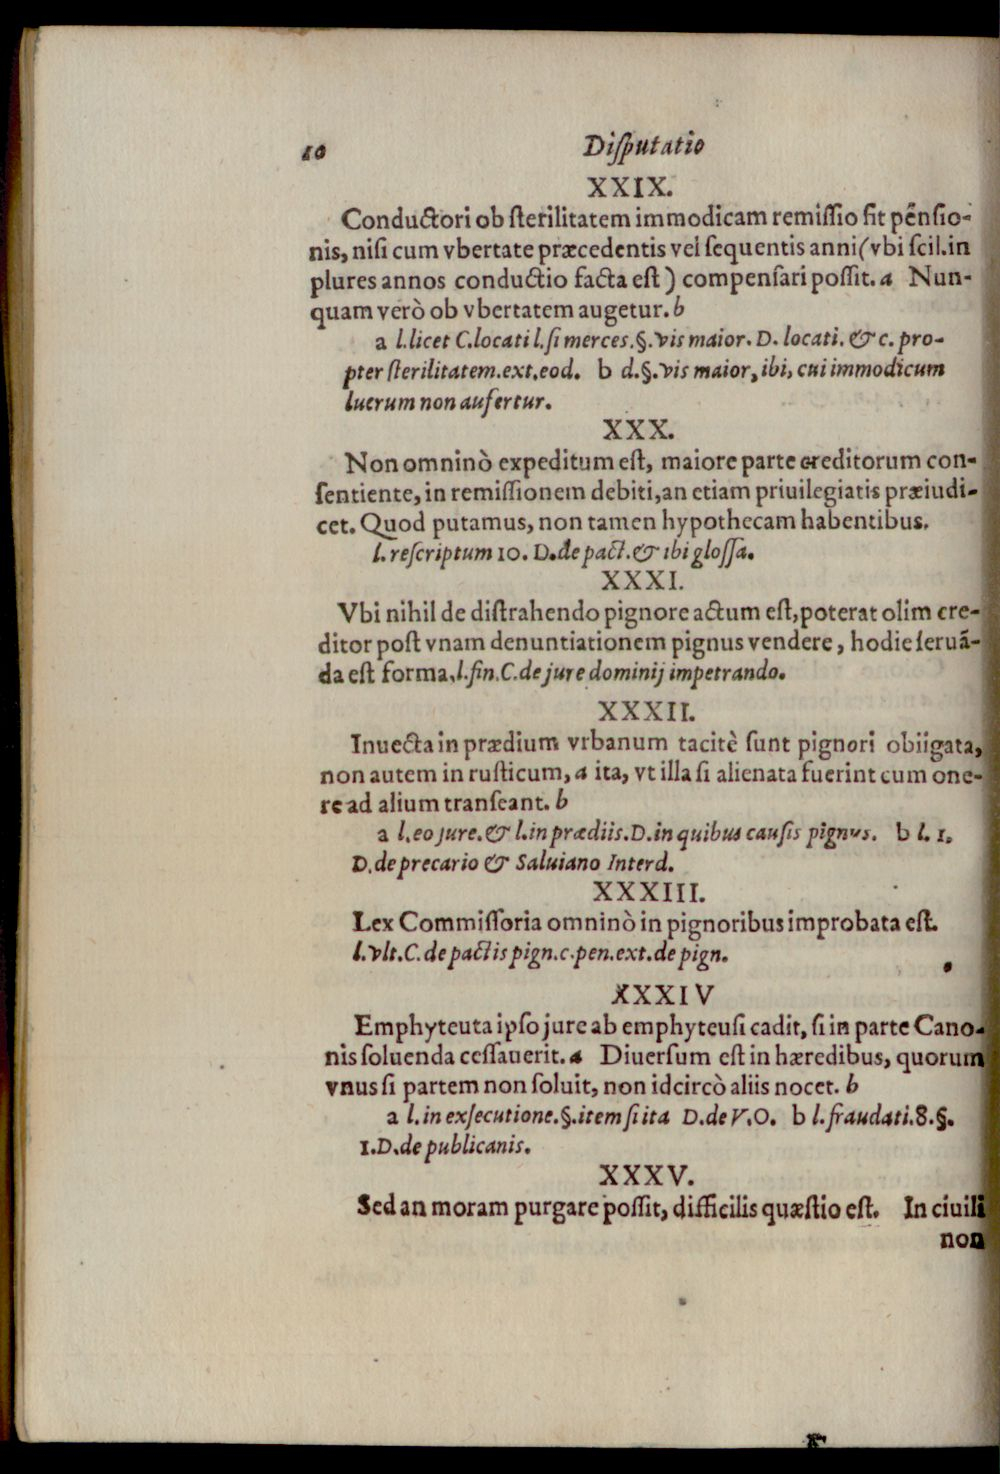 10 Disputatio
XXIX.
Conductori ob sterilitatem immodicam remissio fit pẽnsio-
nis, nisi cum vbertate præcedentis vel sequentis anni (vbi scil. in
plures annos conductio facta est) compensari possit. a Nun-
quam verò ob vbertatem augetur. b
a l. licet C. locati l. si merces. §. vis maior. D. locati. & c. pro-
pter sterilitatem. ext. eod. b d. §. vis maior, ibi, cui immodicum
lucrum non aufertur.
XXX.
Non omninò expeditum est, maiore parte creditorum con-
sentiente, in remissionem debiti, an etiam priuilegiatis præiudi-
cet. Quod putamus, non tamen hypothecam habentibus.
l. rescriptum 10. D. de pact. & ibi glossa.
XXXI.
Vbi nihil de distrahendo pignore actum est, poterat olim cre-
ditor post vnam denuntiationem pignus vendere, hodie seruã-
da est forma, l. fin. C. de jure dominij impetrando.
XXXII.
Inuecta in prædium vrbanum tacitè sunt pignori obligata,
non autem in rusticum, a ita, vt illa si alienata fuerint cum one-
re ad alium transeant. b
a l. eo jure. & l. in prædiis. D. in quibus causis pignus. b l. 1.
D. de precario & Saluiano Interd.
XXXIII.
Lex Commissoria omninò in pignoribus improbata est.
l. vlt. C. de pactis pign. c. pen. ext. de pign.
XXXIV
Emphyteuta ipso jure ab emphyteusi cadit, si in parte Cano-
nis soluenda cessauerit. a Diuersum est in hæredibus, quorum
vnus si partem non soluit, non idcircò aliis nocet. b
a l. in exsecutione. §. item si ita D. de V. O. b l. fraudati. 8. §.
1. D. de publicanis.
XXXV.
Sed an moram purgare possit, difficilis quæstio est. In ciuili
non